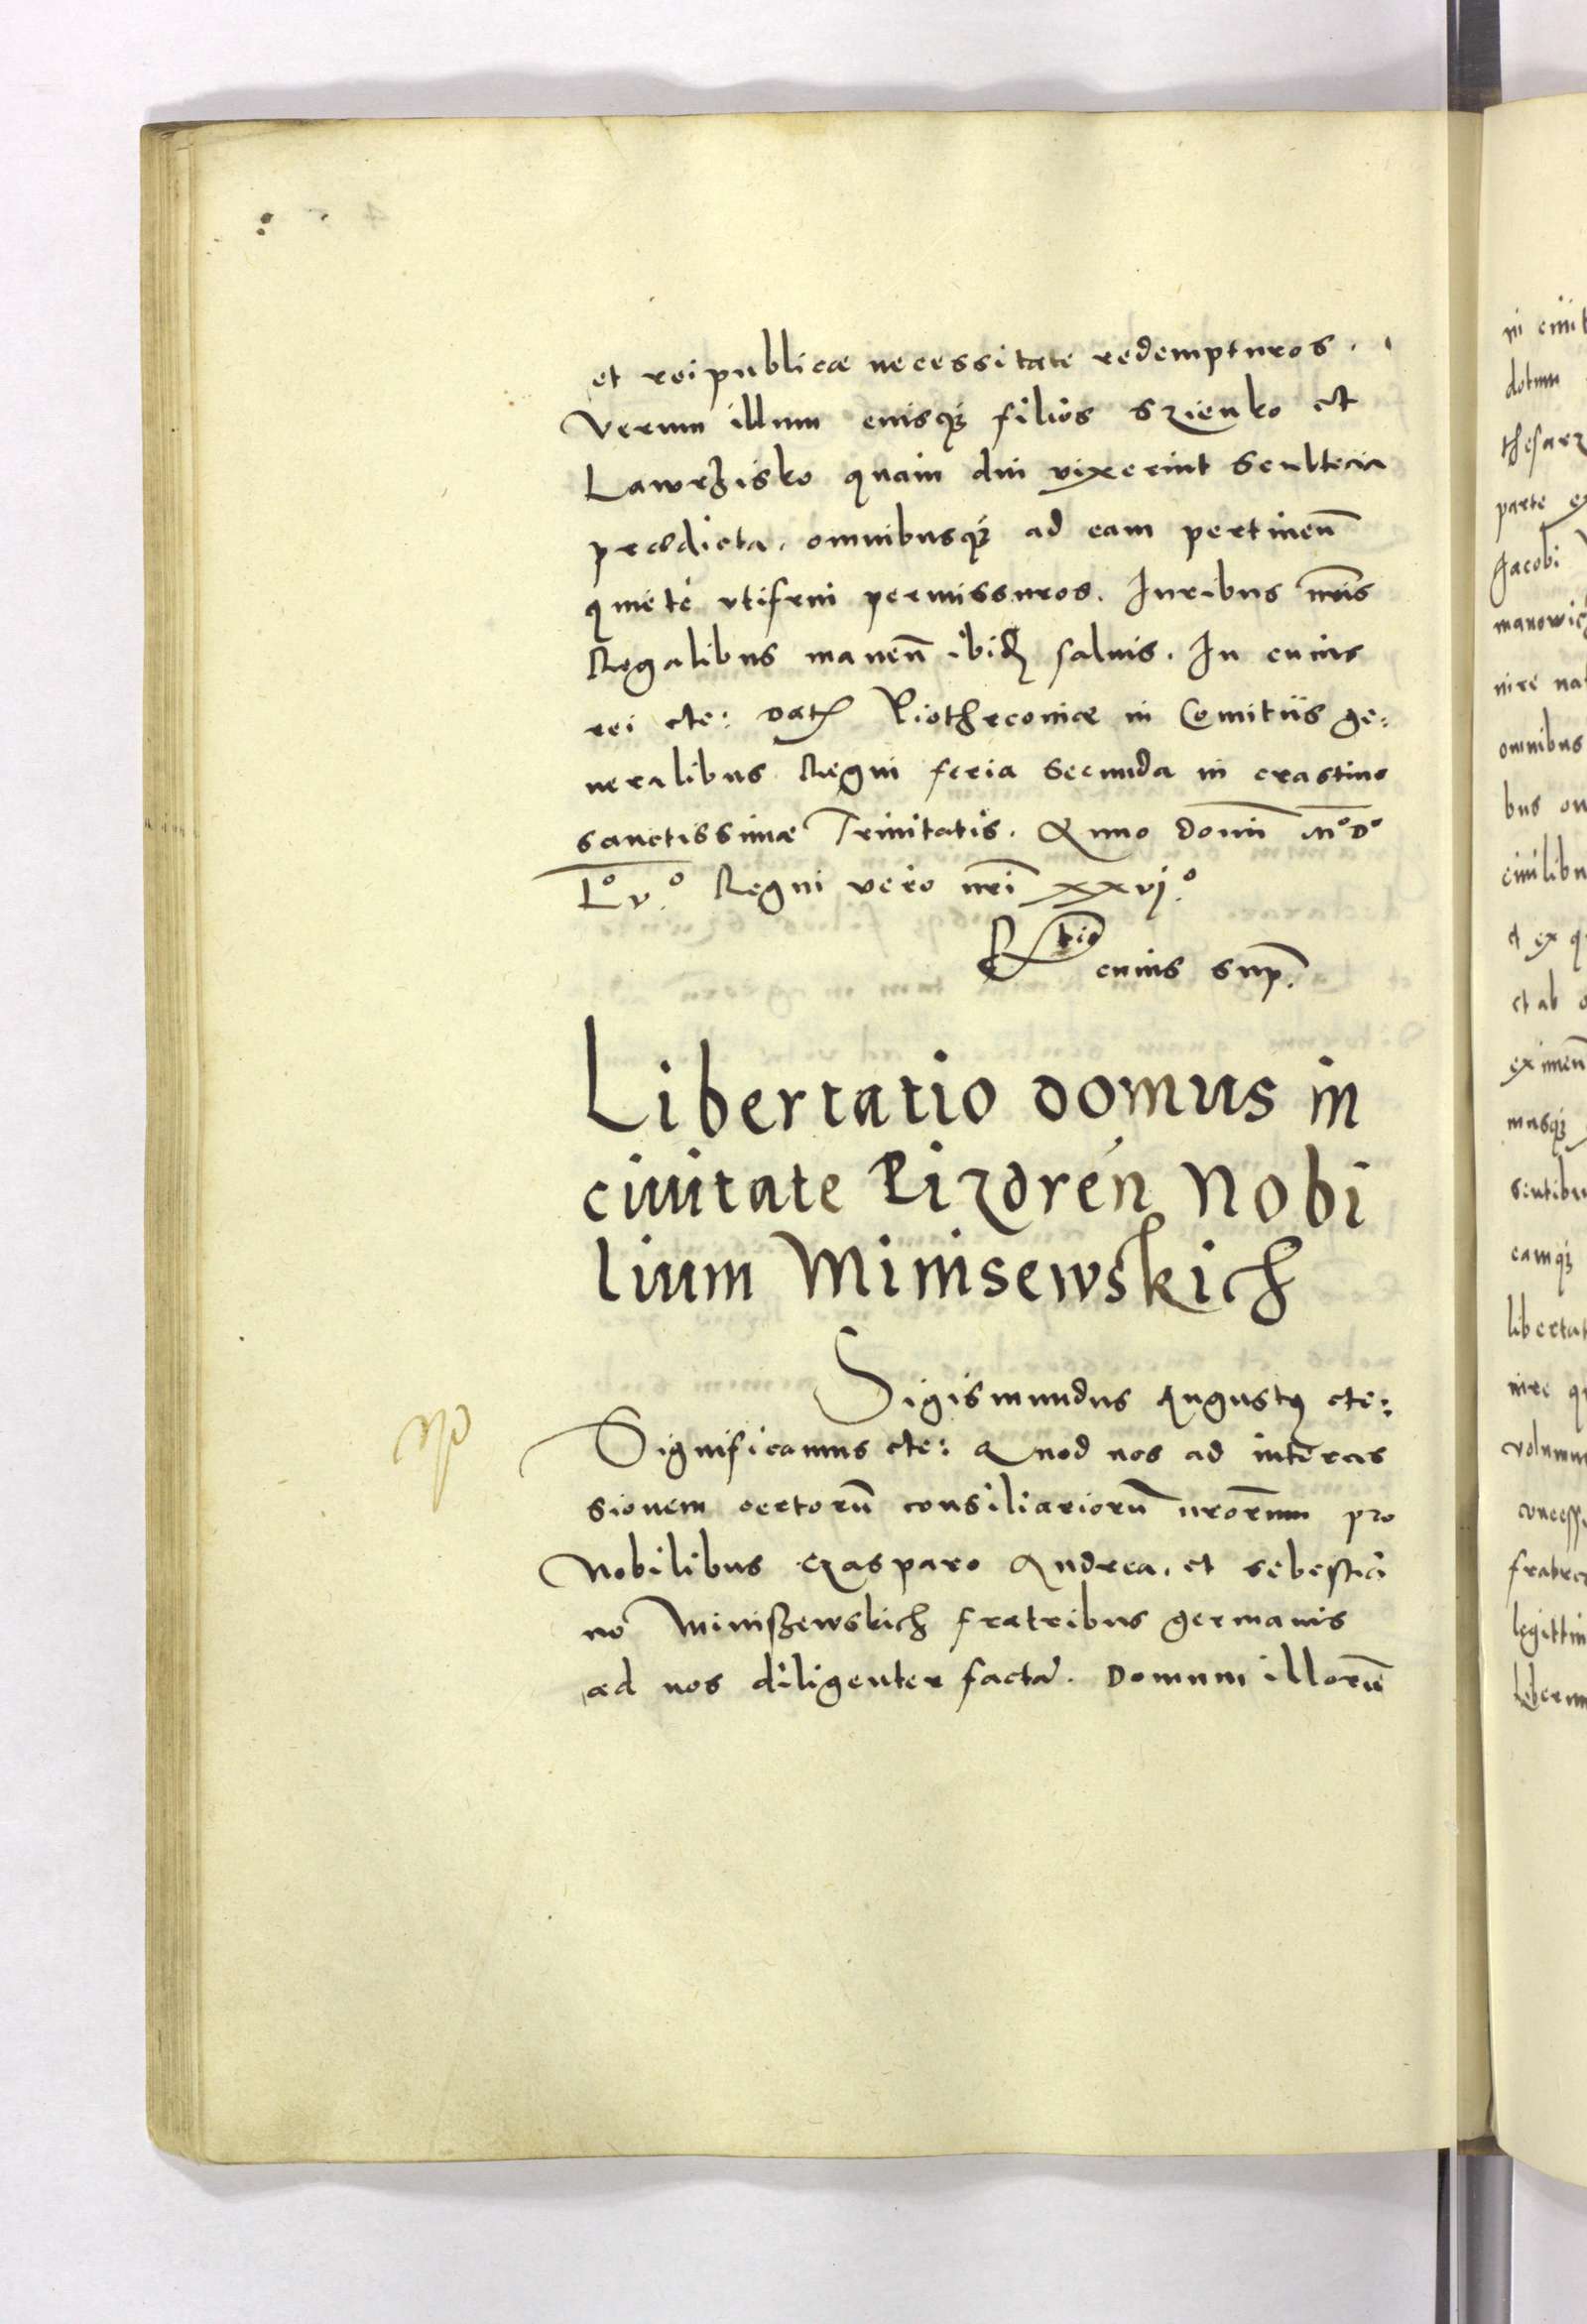 et reipublicæ necessitate redempturos.
Verum illum eiusq; filios Szienko et
Lawrzisko quam diu vixerint Scultecia
prædicta, omnibusq; ad eam pertineñ
quiete utifrui permissuros. Iuribus nr̃is
Regalibus maneñ ibid saluis. In cuius
rei etc: Dat Piothrcoviæ in Comitiis ge:
neralibus Regni feria Secunda in crastino
sanctissimæ Trinitatis. Anno Domĩ M.º D.º
L.º v.º Regni vero nr̃i xxvj.º
R̃tio cuius sup.
Libertatio domus in
ciuitate Pizdreń Nobi
lium Minisewskich
Sigismundus Augustus etc:
Significamus etc: Quod nos ad interces
sionem certorũ consiliariorũ nr̃orum pro
Nobilibus Casparo Andrea, et Sebestia
no Miniszewskich fratribus germanis
ad nos diligenter factã. Domum illorũ
ni ciuit
dotum
thesarz
parte ex
Jacobi
manowicz
nire nat
omnibus
bus on
ciuilibu
et ex q
et ab o
eximeñ
musq;
sentibu
eamq;
libertat
nire qu
volumu
concess
fratre
legittim
liberum